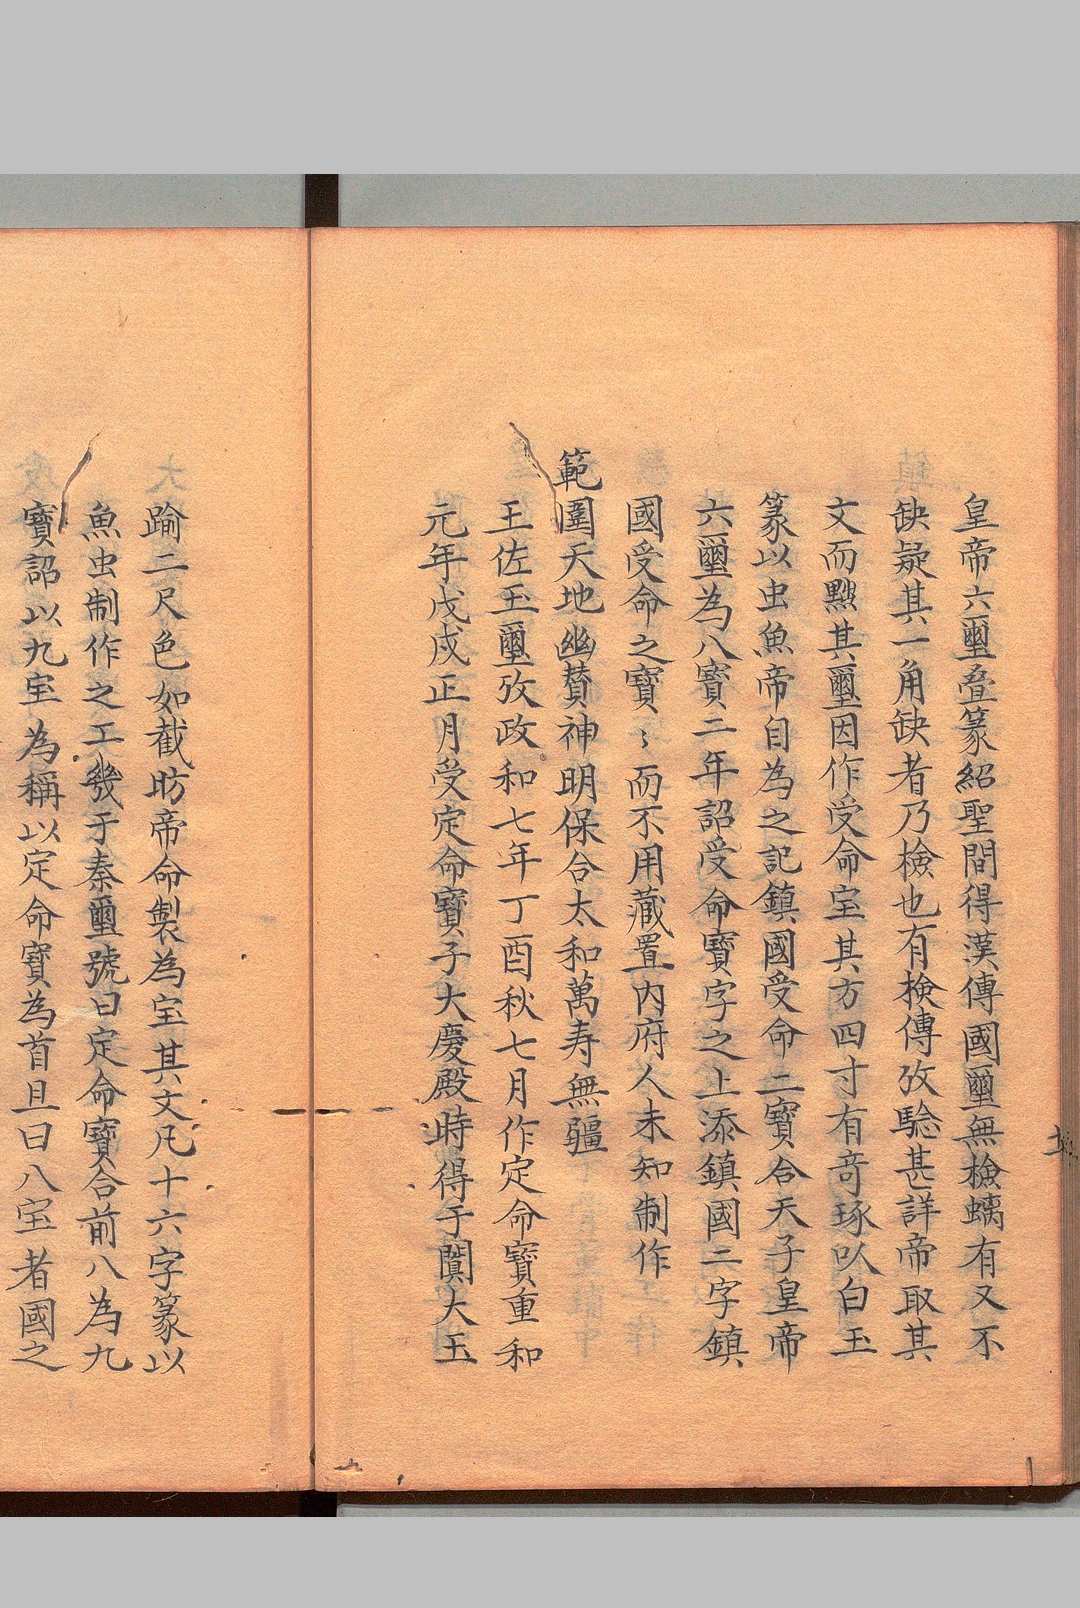 皇帝六璽疊篆紹聖間得漢傳國璽無檢螭有又不
缺疑其一角缺者乃檢也有検傳攷驗甚詳帝取其
文而黙其璽因作受命宝其方四寸有竒琢以白玉
篆以虫魚帝自為之記鎮國受命二寶合天子皇帝
六璽為八寶二年詔受命寶字之上添鎮國二字鎮
國受命之寶〻而不用藏置内府人未知制作
範圍天地幽賛神明保合太和萬寿無疆
王佐玉璽攷政和七年丁酉秋七月作定命寶重和
元年戊戌正月受定命寶子大慶殿時得于闐大玉
踰二尺色如截昉帝命製為宝其文凡十六字篆以
魚虫制作之工幾于秦璽號曰定命寶合前八為九
寶詔以九宝為稱以定命寶為首且曰八宝者國之